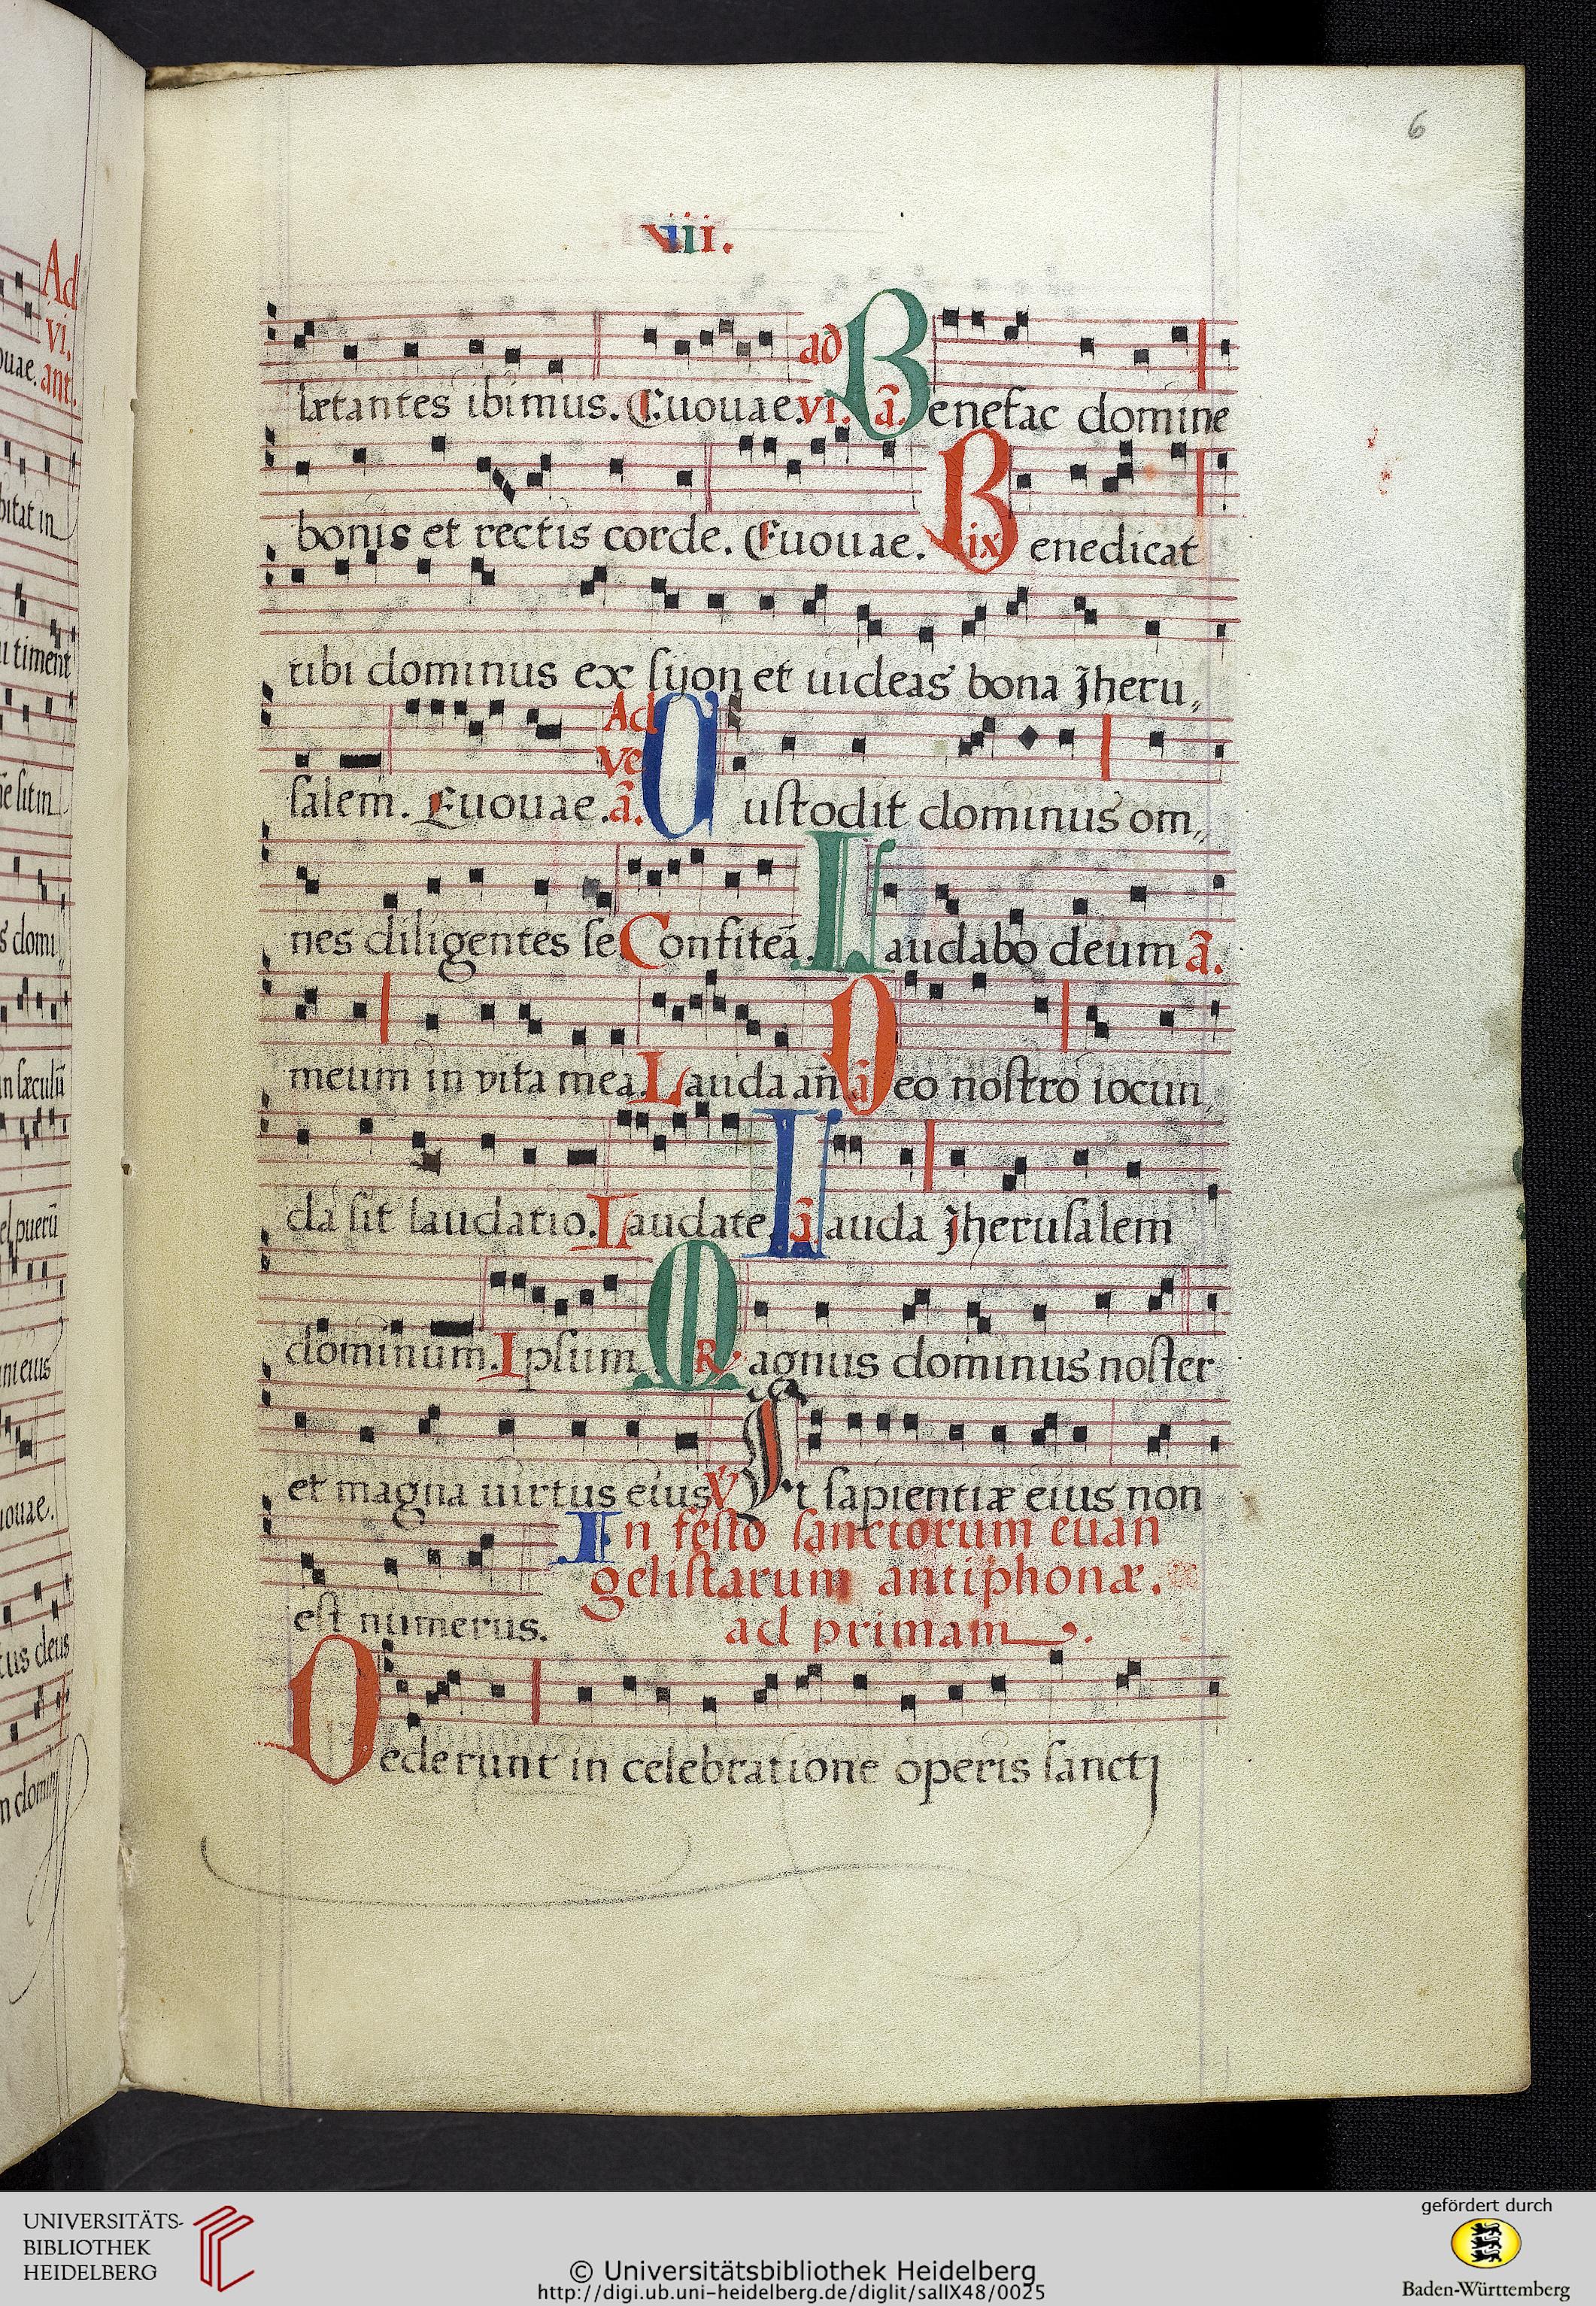 6
viii.
lætantes ibimus. Euouae. ad vi. ã. Benefac domine
bonis et rectis corde. Euouae. ix Benedicat
tibi dominus ex ſyon et uideas bona Jheru,,
ſalem. Euouae. Ad ve ã. Cuſtodit dominus om,,
nes diligentes ſe Confiteã. Laudabo deum ã.
meum in vita mea. Lauda añ ã Deo noſtro iocun,
da ſit laudatio. Laudate. ã. Lauda Jheruſalem
dominum. Ipſum. R Magnus dominus noſter
et magna uirtus eius V Et ſapientiæ eius non
In feſto ſanctorum euan
geliſtarum antiphonæ.
eſt numerus. ad primam.
Dederunt in celebratione operis ſanctj
Ad
vi.
ouae. ant.
bitat in
ui timent
s domi
in ſæculũ
el puerũ
uouae.
tus deus
UNIVERSITÄTS-
BIBLIOTHEK
HEIDELBERG
© Universitätsbibliothek Heidelberg
http://digi.ub.uni-heidelberg.de/diglit/salIX48/0025
gefördert durch
Baden-Württemberg